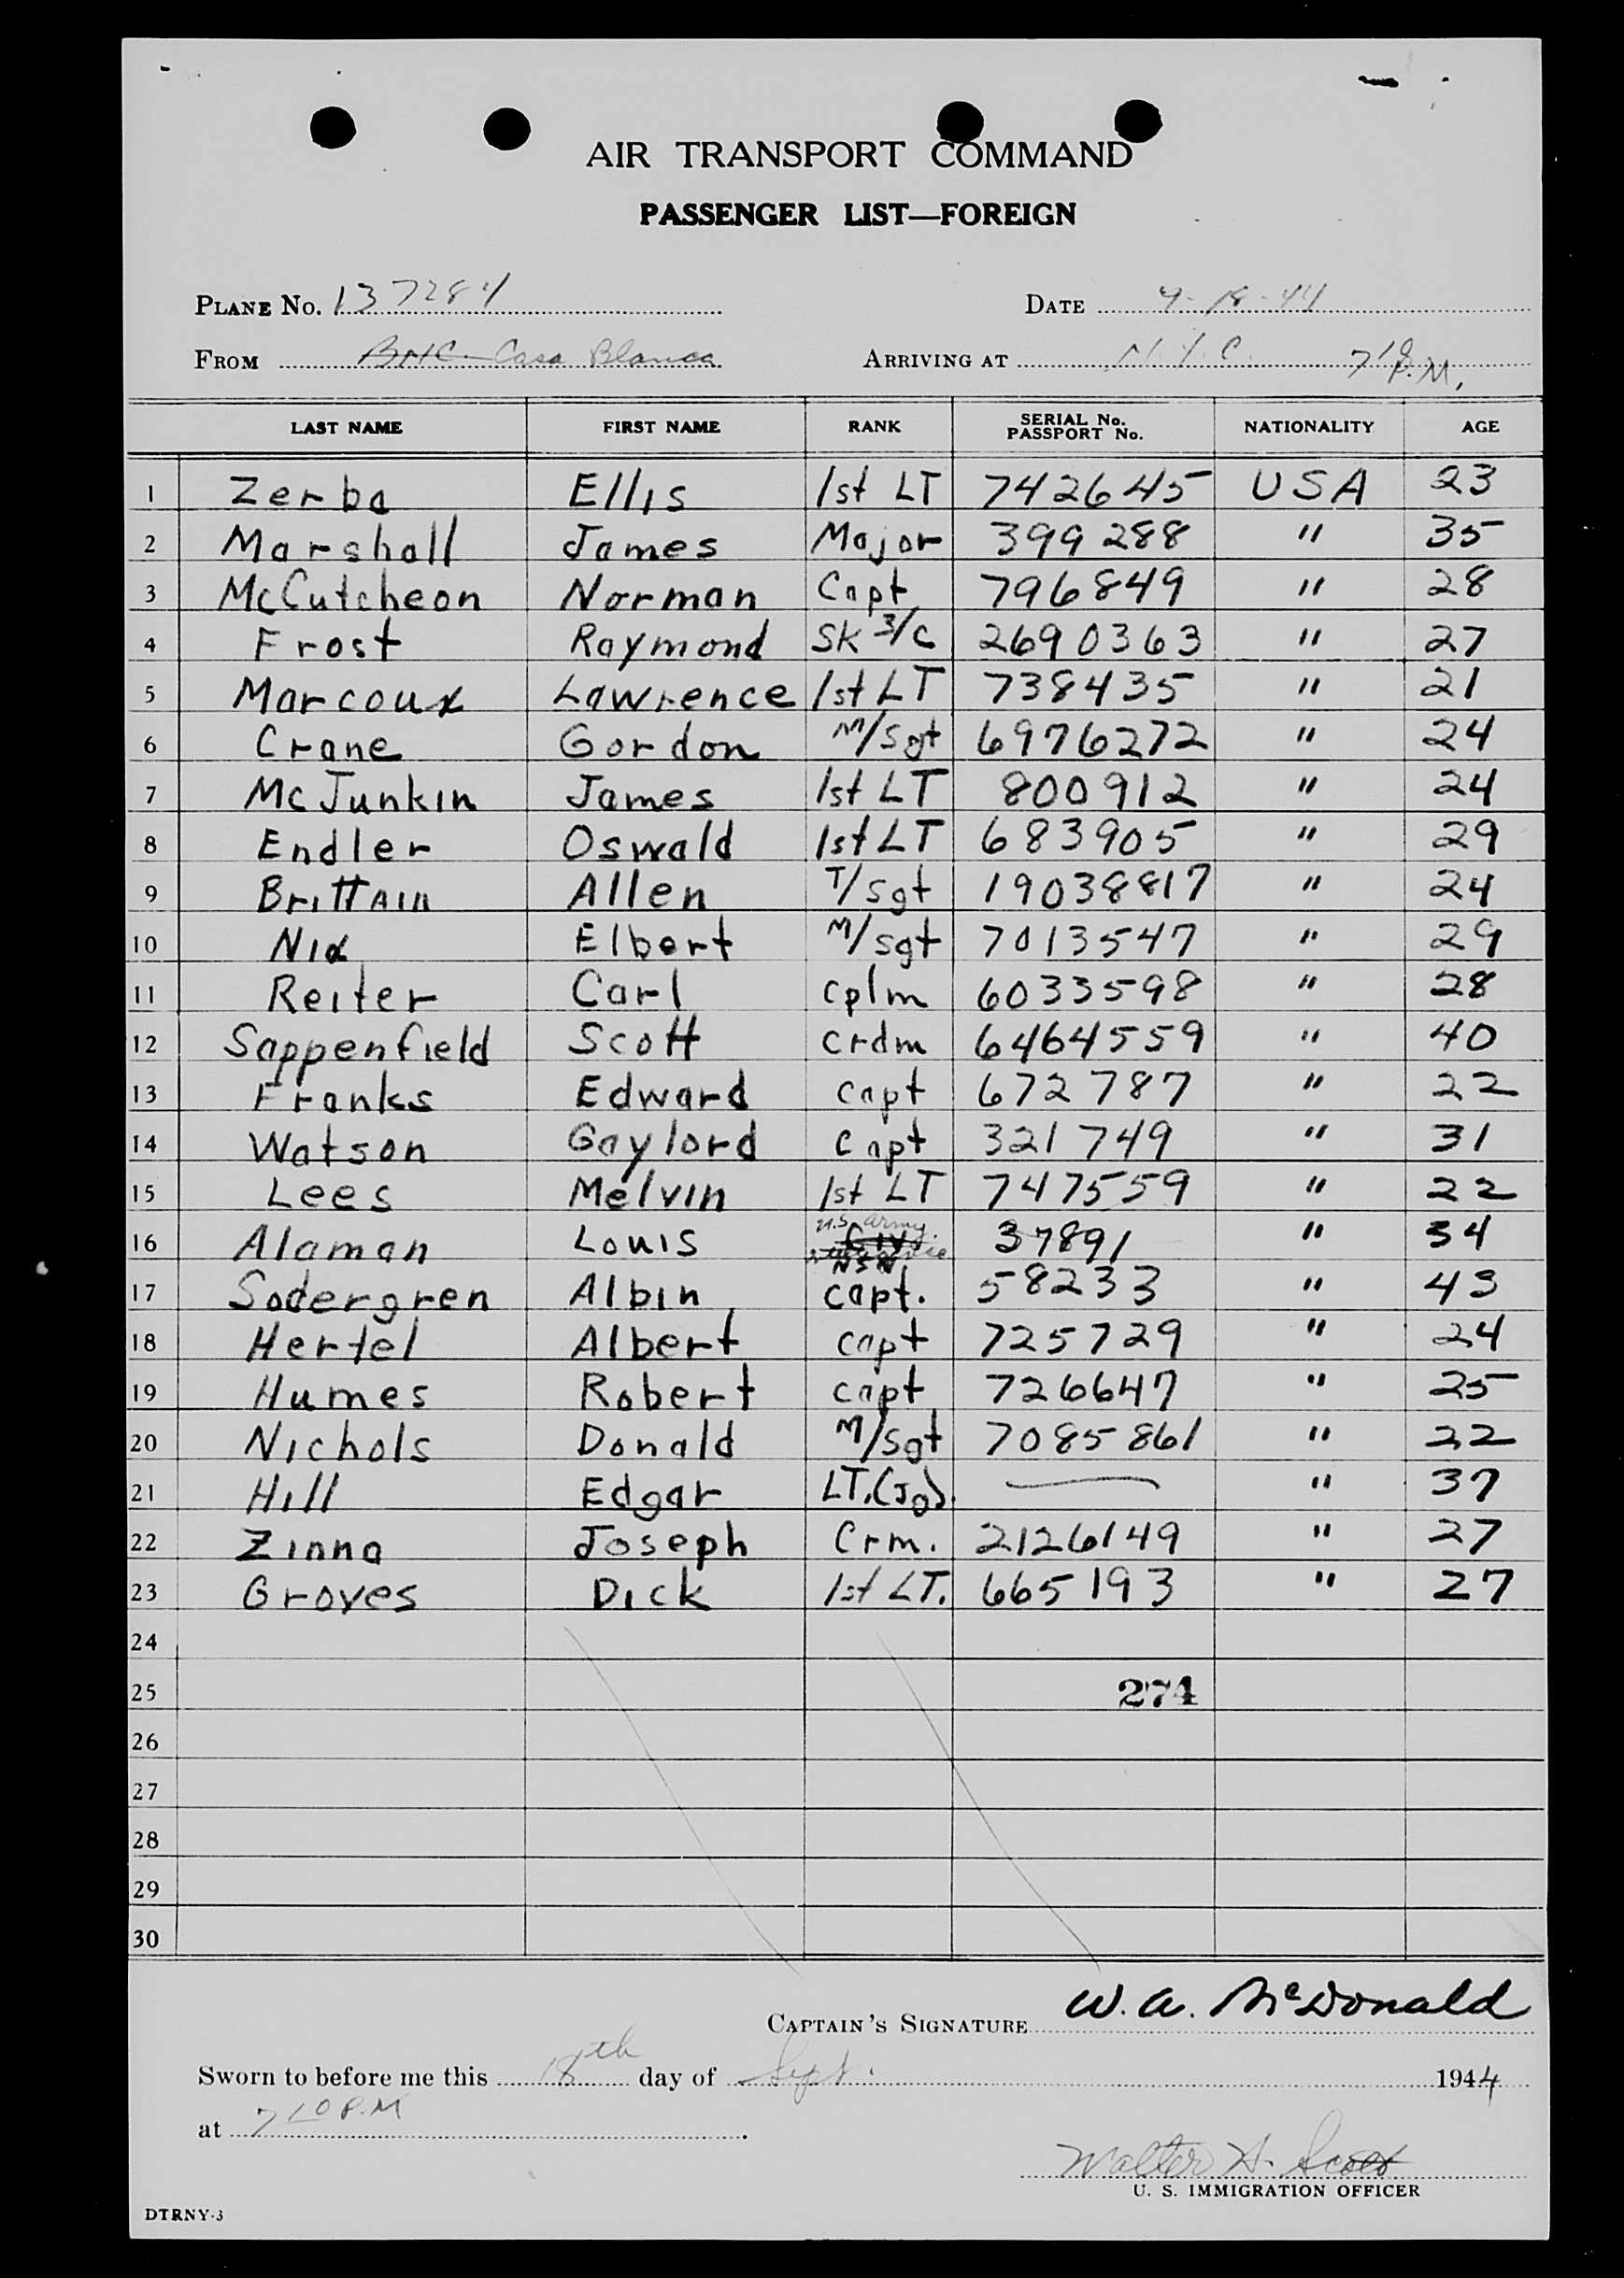 AIR TRANSPORT COMMAND
PASSENGER LIST—FOREIGN
PLANE No. 137284 DATE 9-18-44
FROM Casa Blanca ARRIVING AT N.Y.C. 7 10 P.M.
LAST NAME FIRST NAME RANK SERIAL No. PASSPORT No. NATIONALITY AGE
1 Zerba Ellis 1st LT 742645 USA 23
2 Marshall James Major 399288 " 35
3 McCutcheon Norman Capt 796849 " 28
4 Frost Raymond SK 3/C 2690363 " 27
5 Marcoux Lawrence 1st LT 738435 " 21
6 Crane Gordon M/Sgt 6976272 " 24
7 McJunkin James 1st LT 800912 " 24
8 Endler Oswald 1st LT 683905 " 29
9 Brittain Allen T/Sgt 19038817 " 24
10 Nix Elbert M/sgt 7013547 " 29
11 Reiter Carl cplm 6033598 " 28
12 Sappenfield Scott crdm 6464559 " 40
13 Franks Edward capt 672787 " 22
14 Watson Gaylord capt 321749 " 31
15 Lees Melvin 1st LT 747559 " 22
16 Alaman Louis U.S. Army 37891 " 34
17 Sodergren Albin capt. 58233 " 43
18 Hertel Albert capt 725729 " 24
19 Humes Robert capt 726647 " 25
20 Nichols Donald M/Sgt 7085861 " 22
21 Hill Edgar LT.(Jg). — " 37
22 Zinna Joseph Crm. 2126149 " 27
23 Groves Dick 1st LT. 665193 " 27
24
25 274
26
27
28
29
30
CAPTAIN'S SIGNATURE W. A. McDonald
Sworn to before me this 18th day of Sept. 1944
at 7 10 P.M.
Walter S. Scott
U. S. IMMIGRATION OFFICER
DTRNY-3